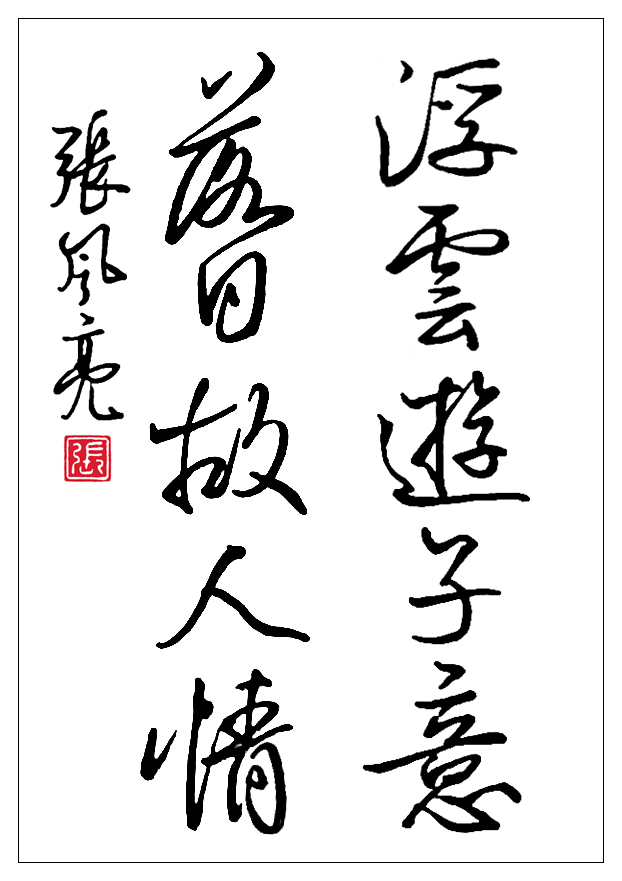 浮雲遊子意
落日故人情
張風亮
張